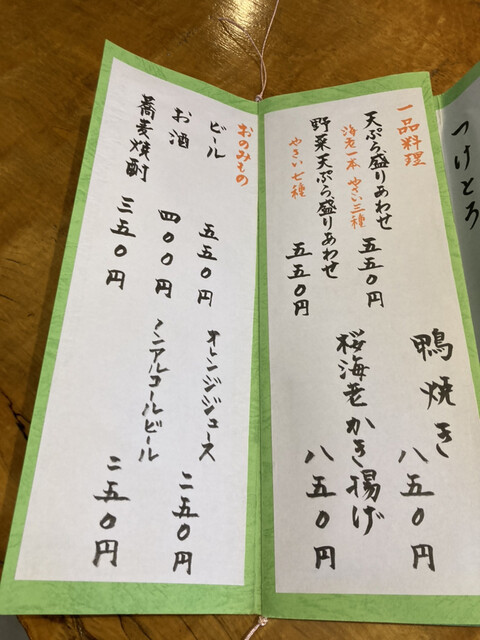 つけとろ
一品料理
天ぷら盛りあわせ 五五〇円
海老一本 やさい三種
野菜天ぷら盛りあわせ 五五〇円
やさい七種
鴨焼き 八五〇円
桜海老かき揚げ 八五〇円
おのみもの
ビール 五五〇円
お酒 四〇〇円
蕎麦焼酎 三五〇円
オレンジジュース 二五〇円
ノンアルコールビール 二五〇円